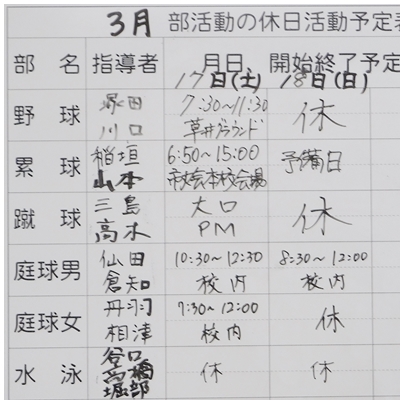 3月 部活動の休日活動予定表
部 名 指導者 月日、開始終了予定
17日(土) 18日(日)
野 球 塚田 川口 7:30~11:30 草井グラウンド 休
累 球 稲垣 山本 6:50~15:00 市大会本校会場 予備日
蹴 球 三島 高木 大口 PM 休
庭球男 仙田 倉知 10:30~12:30 校内 8:30~12:00 校内
庭球女 丹羽 相津 7:30~12:00 校内 休
水 泳 谷口 高橋 堀部 休 休